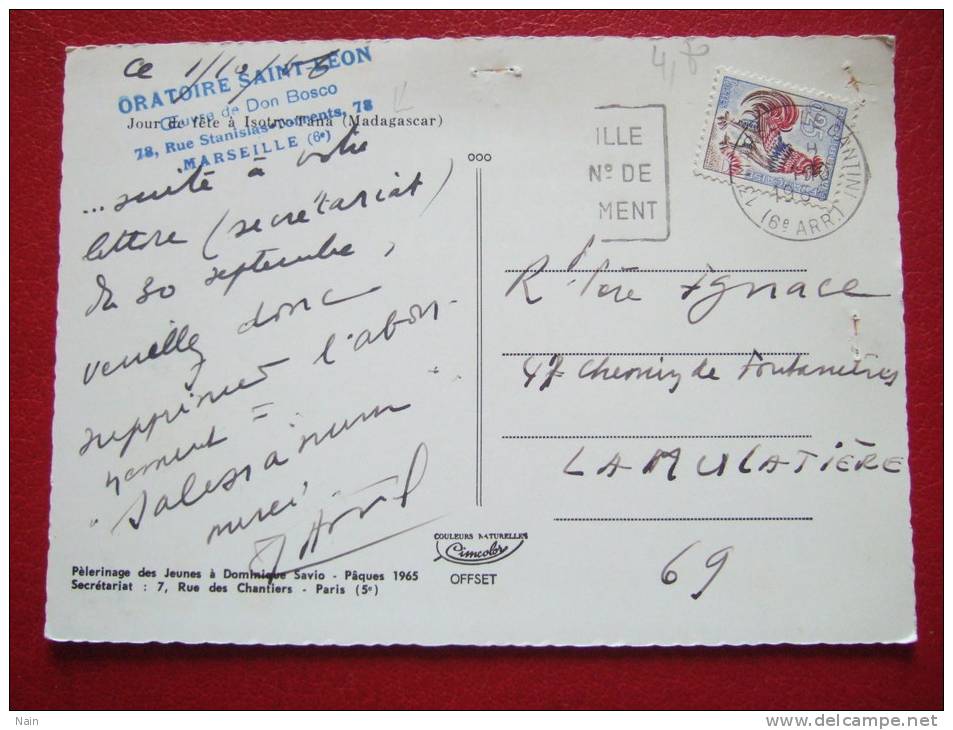 ce 1/10/
ORATOIRE SAINT-LEON
Œuvre de Don Bosco
78, Rue Stanislas-Torrents, 78
MARSEILLE (6e)
Jour de fête à Isotry-Tana (Madagascar)
... suite à votre
lettre (secrétariat)
du 30 septembre,
veuillez donc
supprimer l'abon-
nement =
"Salesianum
merci
Pèlerinage des Jeunes à Dominique Savio - Pâques 1965
Secrétariat : 7, Rue des Chantiers - Paris (5e)
COULEURS NATURELLES
Cimcolor
OFFSET
ooo
ILLE
No DE
MENT
0,25
ANTINI
(6e ARR.)
R. Père Ignace
47 Chemin de Fontanières
LA MULATIÈRE
69
Nain
http://www.delcampe.net